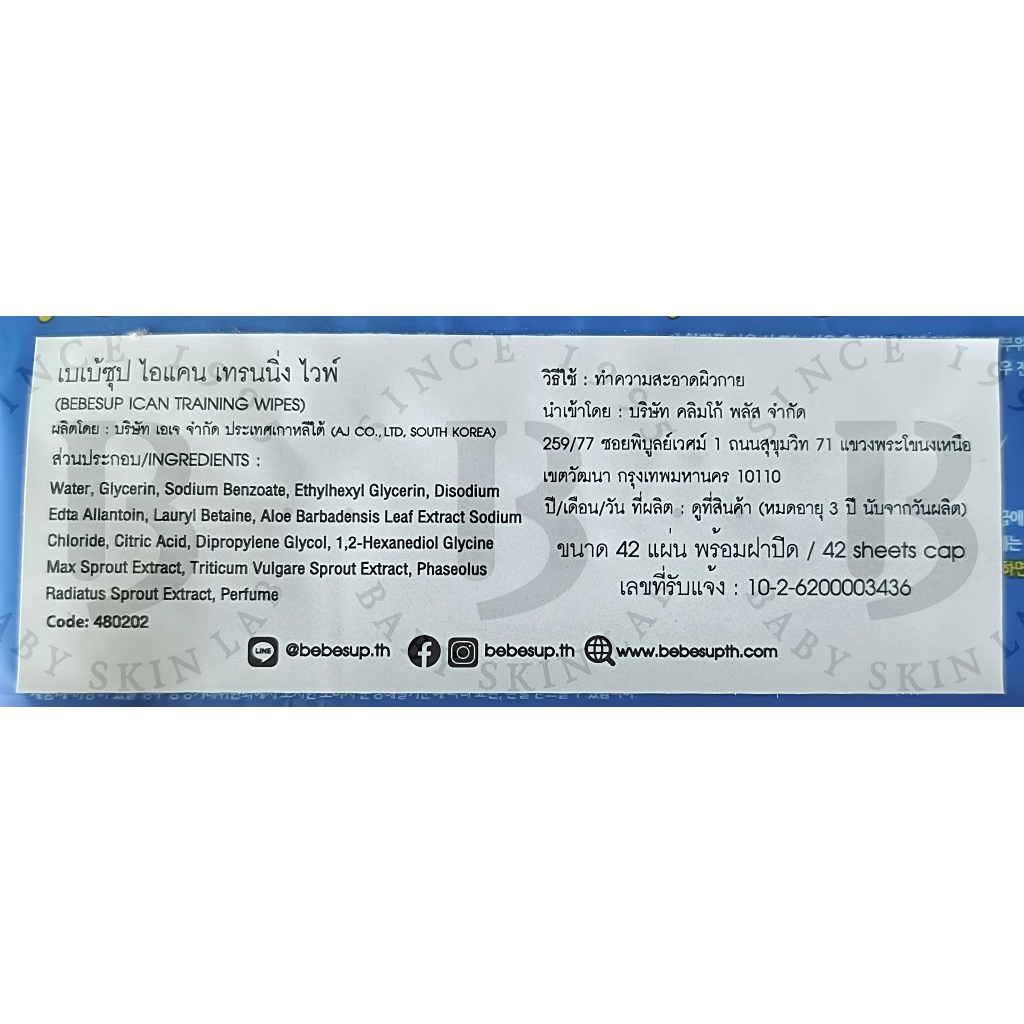 เบเบ้ซุป ไอแคน เทรนนิ่ง ไวพ์
(BEBESUP ICAN TRAINING WIPES)
ผลิตโดย : บริษัท เอเจ จำกัด ประเทศเกาหลีใต้ (AJ CO., LTD, SOUTH KOREA)
ส่วนประกอบ/INGREDIENTS :
Water, Glycerin, Sodium Benzoate, Ethylhexyl Glycerin, Disodium
Edta Allantoin, Lauryl Betaine, Aloe Barbadensis Leaf Extract Sodium
Chloride, Citric Acid, Dipropylene Glycol, 1,2-Hexanediol Glycine
Max Sprout Extract, Triticum Vulgare Sprout Extract, Phaseolus
Radiatus Sprout Extract, Perfume
Code: 480202
วิธีใช้ : ทำความสะอาดผิวกาย
นำเข้าโดย : บริษัท คลิมโก้ พลัส จำกัด
259/77 ซอยพิบูลย์เวศม์ 1 ถนนสุขุมวิท 71 แขวงพระโขนงเหนือ
เขตวัฒนา กรุงเทพมหานคร 10110
ปี/เดือน/วัน ที่ผลิต : ดูที่สินค้า (หมดอายุ 3 ปี นับจากวันผลิต)
ขนาด 42 แผ่น พร้อมฝาปิด / 42 sheets cap
เลขที่รับแจ้ง : 10-2-6200003436
LINE @bebesup.th bebesup.th www.bebesupth.com
SINCE 1985
BABY SKIN LAB